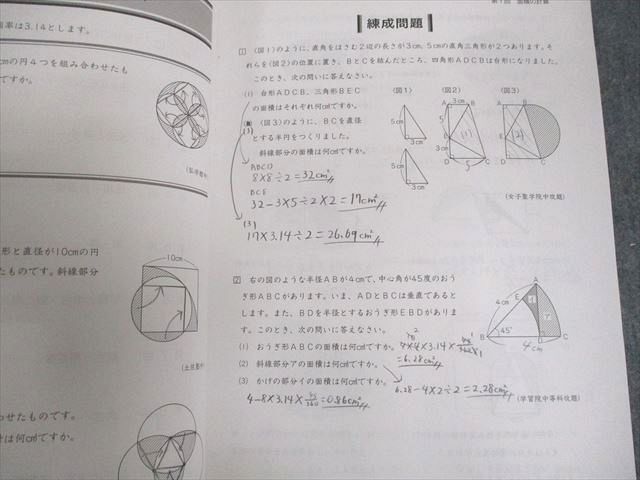 第1回 面積の計算
率は3.14とします。
の円4つを組み合わせたも
cm²ですか。
形と直径が10cmの円
たものです。斜線部分
10cm
わせたものです。
は何cm²ですか。
練成問題
1 (図1)のように、直角をはさむ2辺の長さが3cm、5cmの直角三角形が2つあります。そ
れらを(図2)の位置に置き、BとCを結んだところ、四角形ADCBは台形になりました。
このとき、次の問いに答えなさい。
(1) 台形ADCB、三角形BEC
の面積はそれぞれ何cm²ですか。
(図3)のように、BCを直径
とする半円をつくりました。
斜線部分の面積は何cm²ですか。
(図1)
(図2)
(図3)
5cm
3cm
5cm
3cm
A 3cm B
5
(1)
E
3cm
D 5 C
A B
E (2)
D C
(女子聖学院中改題)
ABCD
8×8÷2=32cm²
BCE
32-3×5÷2×2=17cm²
(3)
17×3.14÷2=26.69cm²
2 右の図のような半径ABが4cmで、中心角が45度のおう
ぎ形ABCがあります。いま、ADとBCは垂直であると
します。また、BDを半径とするおうぎ形EBDがありま
す。このとき、次の問いに答えなさい。
(1) おうぎ形ABCの面積は何cm²ですか。
=6.28cm²
(2) 斜線部分アの面積は何cm²ですか。
(3) かげの部分イの面積は何cm²ですか。
6.28-4×2÷2=2.28cm²
4-8×3.14×45/360=0.86cm²
A
4cm
E
イ
ア
B 45° D C
4cm
(学習院中等科改題)